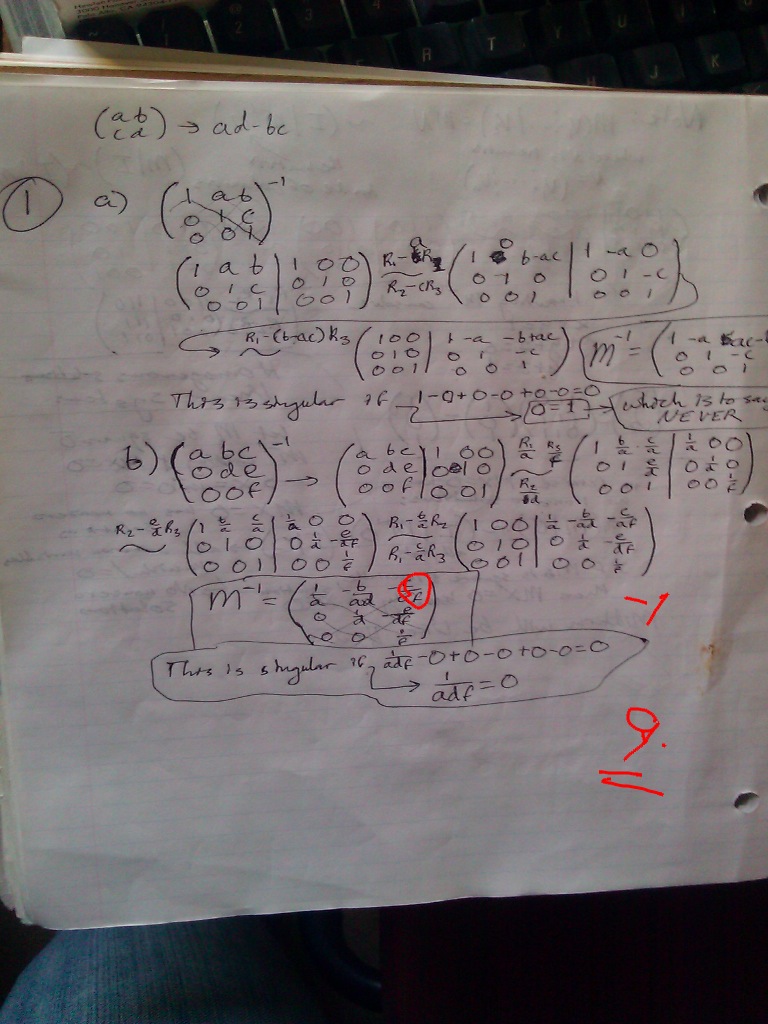 2 3 4
R T Y U
J K
(a b
c d) → ad-bc
① a) (1 a b
0 1 c
0 0 1)⁻¹
(1 a b | 1 0 0
0 1 c | 0 1 0
0 0 1 | 0 0 1) R₁-aR₂ ~ R₂-cR₃ (1 0 b-ac | 1 -a 0
0 1 0 | 0 1 -c
0 0 1 | 0 0 1)
→ R₁-(b-ac)R₃ ~ (1 0 0 | 1 -a -b+ac
0 1 0 | 0 1 -c
0 0 1 | 0 0 1) M⁻¹ = (1 -a ac-b
0 1 -c
0 0 1
This is singular if 1-0+0-0+0-0=0
→ 0=1 → which is to say
NEVER
b) (a b c
0 d e
0 0 f)⁻¹ → (a b c | 1 0 0
0 d e | 0 1 0
0 0 f | 0 0 1) R₁/a R₃/f ~ R₂/d (1 b/a c/a | 1/a 0 0
0 1 e/d | 0 1/d 0
0 0 1 | 0 0 1/f)
R₂-e/d R₃ ~ (1 b/a c/a | 1/a 0 0
0 1 0 | 0 1/d -e/df
0 0 1 | 0 0 1/f) R₁-b/a R₂ ~ R₁-c/a R₃ (1 0 0 | 1/a -b/ad -c/af
0 1 0 | 0 1/d -e/df
0 0 1 | 0 0 1/f)
M⁻¹ = (1/a -b/ad -c/af
0 1/d -e/df
0 0 1/f)
-1
This is singular if 1/adf-0+0-0+0-0=0
→ 1/adf = 0
9.